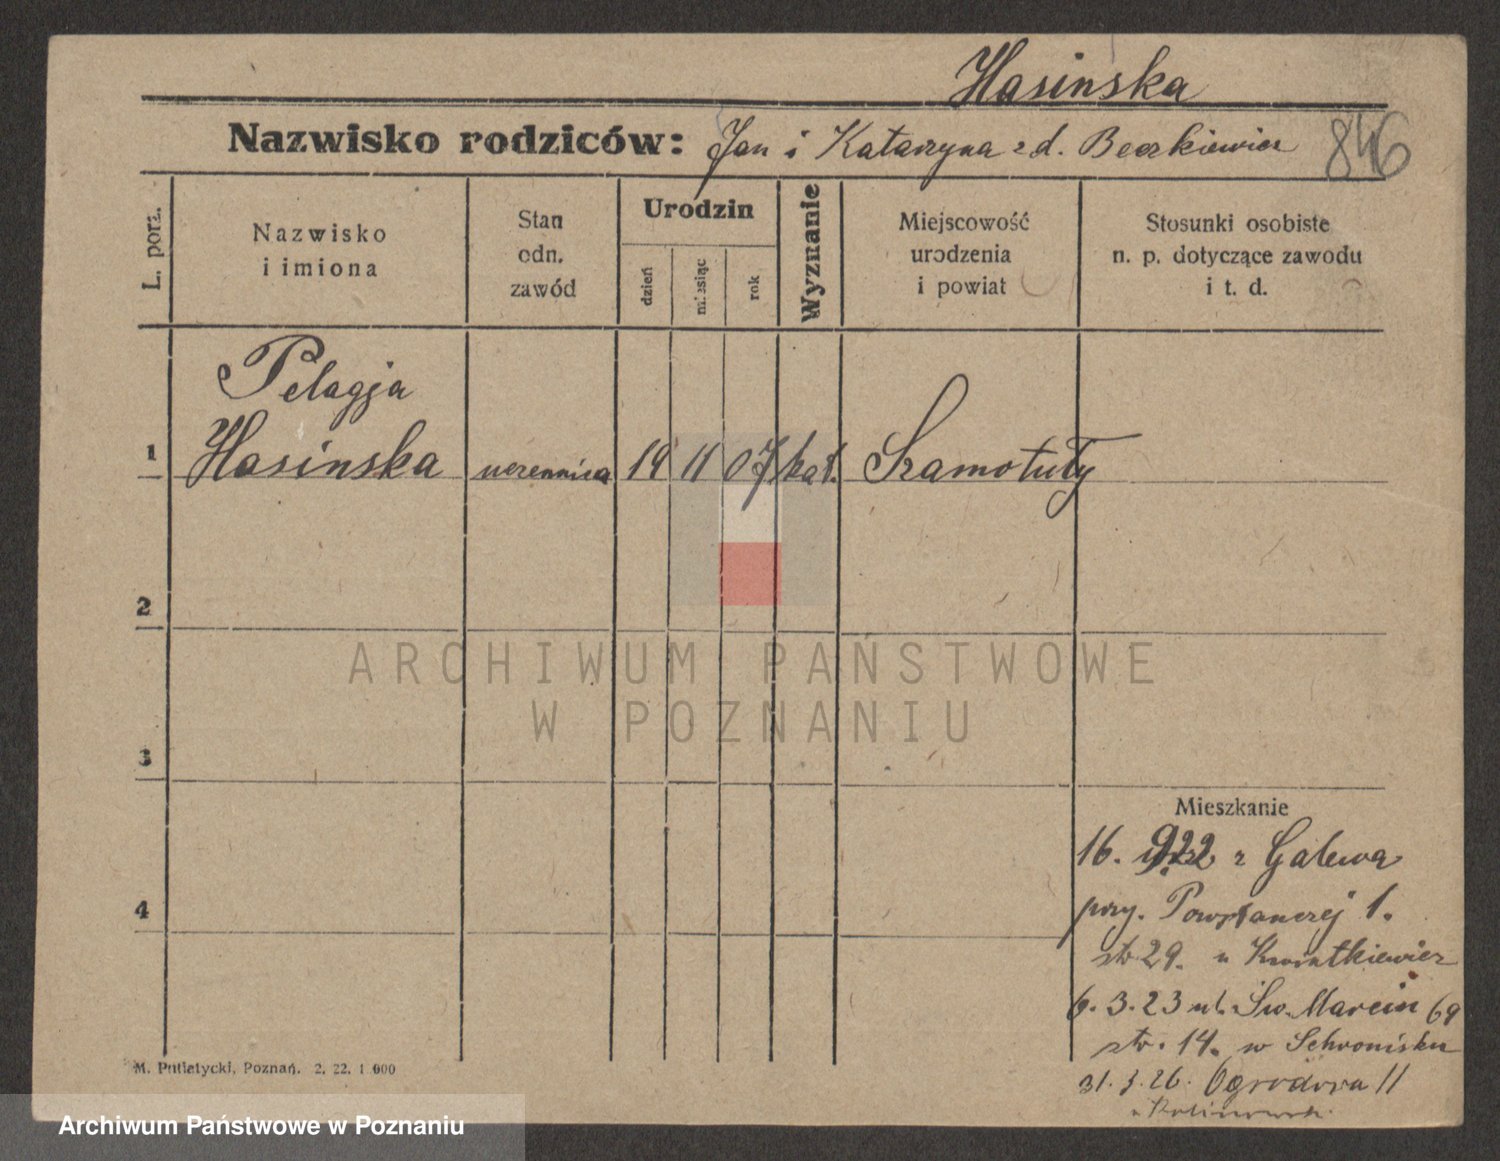 Hasinska
Nazwisko rodziców: Jan i Katarzyna z d. Beczkiewicz
846
L. porz.
Nazwisko
i imiona
Stan
odn.
zawód
Urodzin
dzień
miesiąc
rok
Wyznanie
Miejscowość
urodzenia
i powiat
Stosunki osobiste
n. p. dotyczące zawodu
i t. d.
Pelagja
1 Hasinska uczennica 19 11 07 kat. Szamotuły
2
ARCHIWUM PAŃSTWOWE
W POZNANIU
3
Mieszkanie
16. 922 z Galewa
przy. Powstańczej 1.
4
str 29. u Kwiatkiewicz
6. 3. 23 ul. Św. Marcin 69
str. 14. w Schronisku
31. 3. 26. Ogrodowa 11
M. Putiatycki, Poznań. 2. 22. 1 000
Archiwum Państwowe w Poznaniu